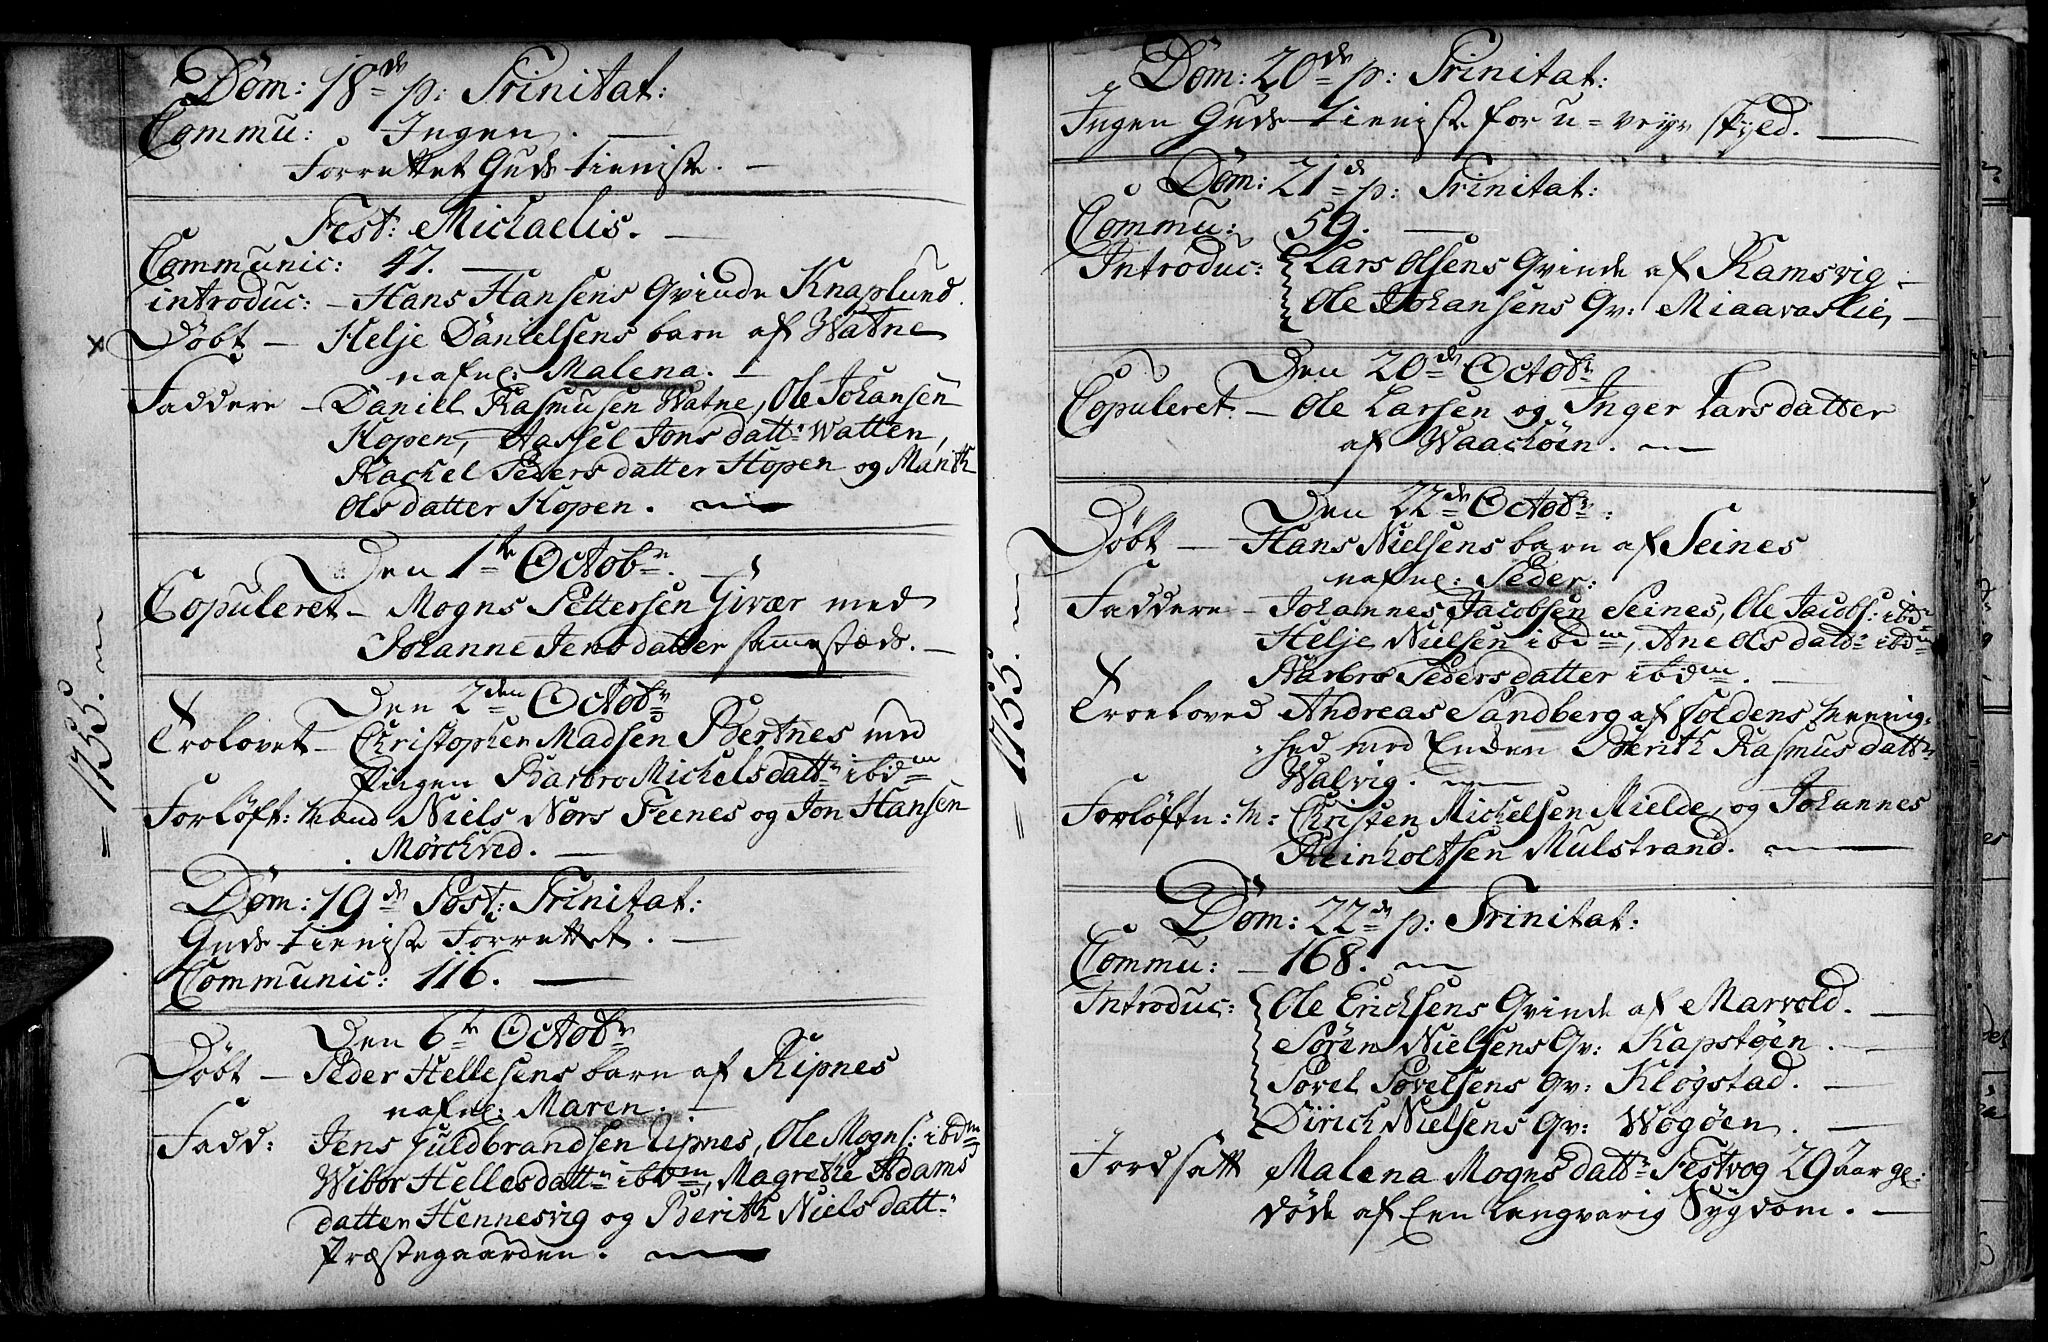 Dom: 18de p: Trinitat:
Commu: Ingen.
Forrettet Guds tieniste.
Fest: Michaelis.
Communic: 47.
introduc: - Hans Hansens Qvinde Knaplund.
x Döbt - Helje Danielsens barn af Watne
nafnl: Malena.
Faddere - Daniel Rasmusen Watne, Ole Johansen
Hopen, Jons datt: Watten,
Rachel Peders datter Hopen og Marith
Ols datter Hopen.
Den 1te Octobr
Copuleret - Mogns Pettersen Givær med
Johanne Jens datter sammestæds.
= 1755.
Den 2den Octobr
Trolovet - Christopher Madsen Bertnes med
Pigen Barbro Michelsdattr ibdm
Forlöft: mænd Niels Nors Feenes og Jon Hansen
Mörchved.
Dom: 19de Post: Trinitat:
Guds tieniste Forrettet.
Communic: 116.
Den 6te Octobr
Döbt - Peder Hellesens barn af Ripnes
nafnl: Maren:
Fadd: Jens Guldbrandsen Lipnes, Ole Mogns: ibdm
Wibor Hellesdattr ibdm, Magrethe Adams
datter Hennesvig og Berith Niels datt:
Præstegaarden.
Dom: 20de p: Trinitat:
Ingen Guds-tieniste for u=veyr skyld.
Dom: 21de p: Trinitat:
Commu: 59.
Introduc: Lars Olsens Qvinde af Ramsvig
Ole Johansens Qv: Miaavaslie,
Den 20de Octobr
Copuleret - Ole Larsen og Inger Lars datter
af Waachöen.
= 1755.
Den 22de Octobr:
x Döbt - Hans Nielsens barn af Seines
nafnl: Peder:
Faddere - Johannes Jacobsen Seines, Ole Jacobs: ibdm
Helje Nielsen ibdm, Ane Ols datr ibdm
Barbro Peders datter ibdm.
Troeloved Andreas Sandberg af Soldens Meenig-
hed med Enden Berith Rasmus dattr
Walvig.
Forlöftn: M: Christen Michelsen Mielde, og Johannes
Reinholtsen Mulstrand.
Dom: 22de p: Trinitat:
Commu: - 168.
Introduc: Ole Erichsens Qvinde af Marvold.
Sören Nielsens Qv: Kapstöen.
Povel Povelsens Qv: Klögstad.
Dirich Nielsens Qv: Wogöen.
Jordsatt Malena Mogns dattr Festvog 29 aar gl:
döde af Een Langvarig Sygdom.